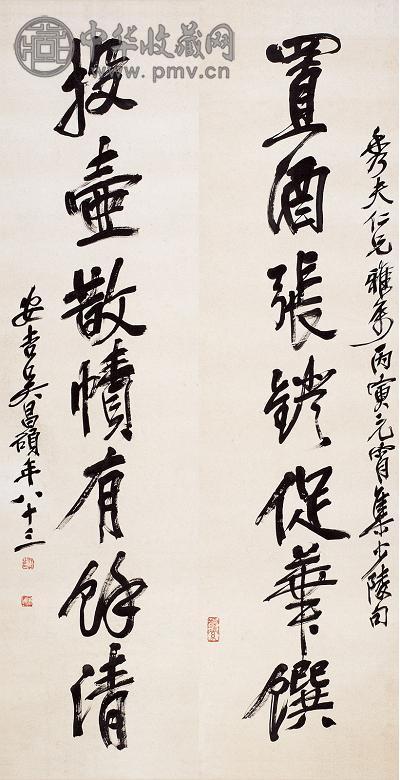 中华收藏网
www.pmv.cn
秀夫仁兄雅屬丙寅元宵集少陵句
置酒張鐙促華饌
投壺散幘有餘清
安吉吳昌碩年八十三